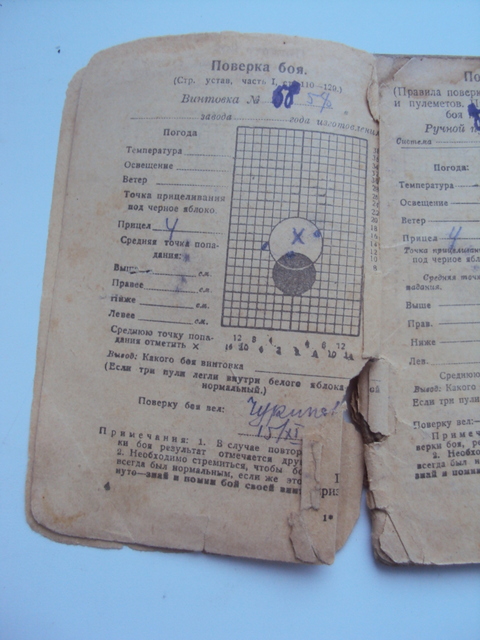 Поверка боя.
(Стр. устав, часть I, 110—129.)
Винтовка №
завода года изготовления
Погода
Температура
Освещение
Ветер
Точка прицеливания
под черное яблоко.
Прицел 4
Средняя точка попа-
дания:
Выше см.
Правее см.
Ниже см.
Левее см.
Среднюю точку попа-
дания отметить X
12 8 4 4 8 12
Вывод: Какого боя винтовка
(Если три пули легли внутри белого яблока
нормальный.)
Поверку боя вел:
15/XI
Примечания: 1. В случае повтор
ки боя результат отмечается дру
2. Необходимо стремиться, чтобы б
всегда был нормальным, если же это
нуто—знай и помни бой своей винт
1*
По
(Правила поверк
и пулеметов.
боя
Ручной п
Система
Погода:
Температура
Освещение
Ветер
Прицел 4
Точка прицеливан
под черное ябл
Средняя точк
падания.
Выше
Прав.
Ниже
Лев.
Среднюю
Вывод: Какого
Если три пули
Поверку вел:
Приме
верки боя, ре
2. Необхо
всегда был н
знай и помн